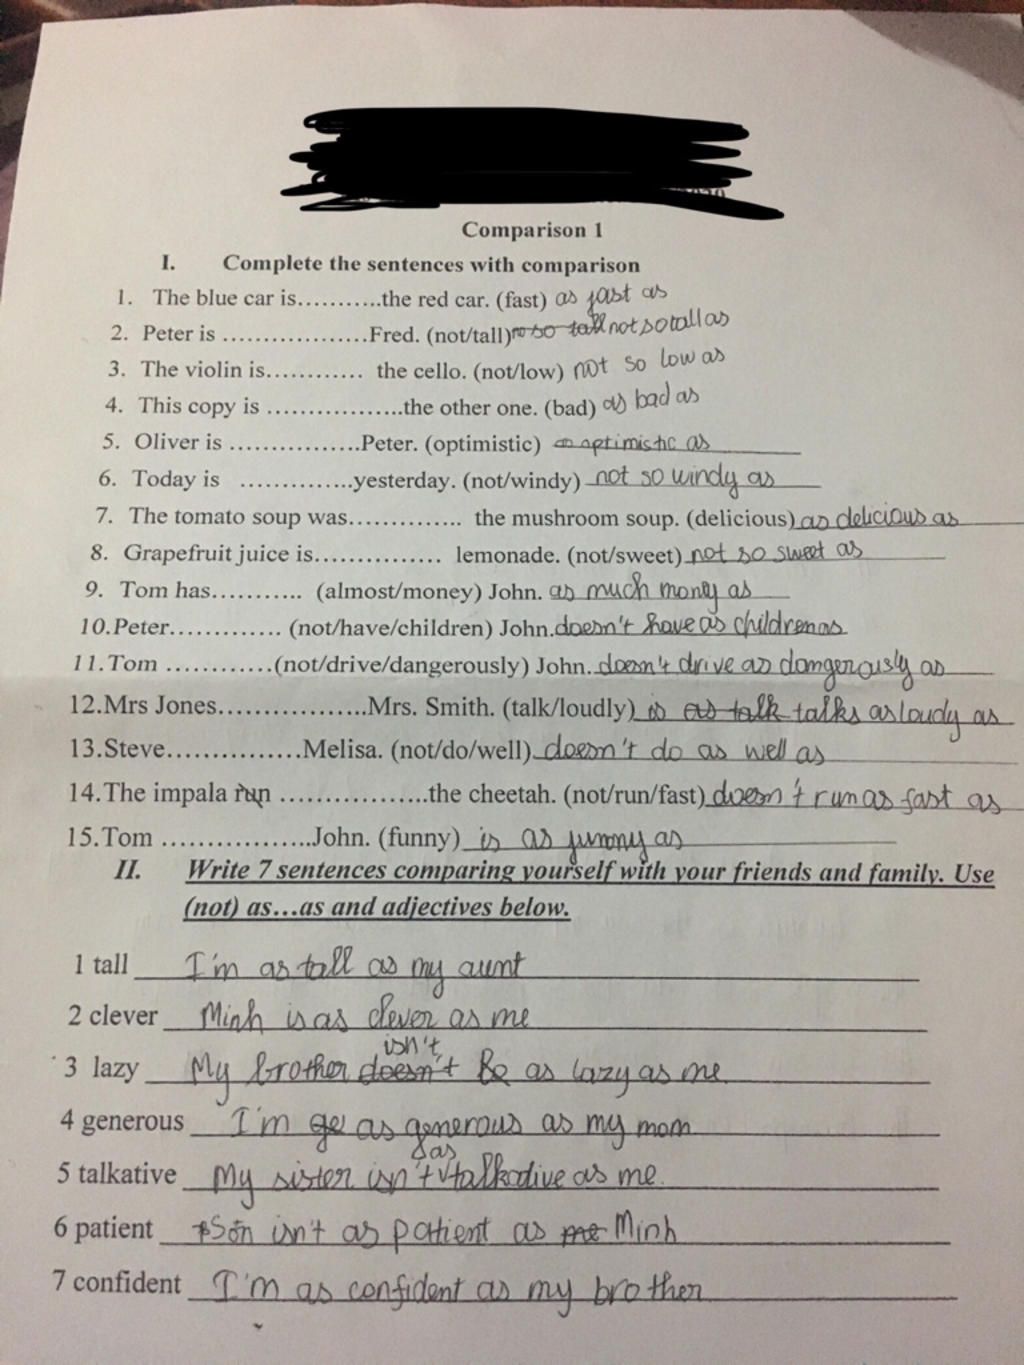 Comparison 1
I. Complete the sentences with comparison
1. The blue car is...........the red car. (fast) as fast as
2. Peter is ..................Fred. (not/tall) so tall not so tall as
3. The violin is............ the cello. (not/low) not so low as
4. This copy is .................the other one. (bad) as bad as
5. Oliver is ................Peter. (optimistic) as optimistic as
6. Today is ..............yesterday. (not/windy) not so windy as
7. The tomato soup was.............. the mushroom soup. (delicious) as delicious as
8. Grapefruit juice is................ lemonade. (not/sweet) not so sweet as
9. Tom has........... (almost/money) John. as much money as
10.Peter............. (not/have/children) John. doesn't have as children as
11.Tom ............(not/drive/dangerously) John. doesn't drive as dangerously as
12.Mrs Jones.................Mrs. Smith. (talk/loudly) is as talk talks as loudy as
13.Steve...............Melisa. (not/do/well) doesn't do as well as
14.The impala run ..................the cheetah. (not/run/fast) doesn't run as fast as
15.Tom ..................John. (funny) is as funny as
II. Write 7 sentences comparing yourself with your friends and family. Use
(not) as...as and adjectives below.
1 tall I'm as tall as my aunt
2 clever Minh is as clever as me
isn't
3 lazy My brother doesn't Be as lazy as me
4 generous I'm ge as generous as my mom
as
5 talkative My sister isn't talkative as me.
6 patient Sơn isn't as patient as me Minh
7 confident I'm as confident as my brother